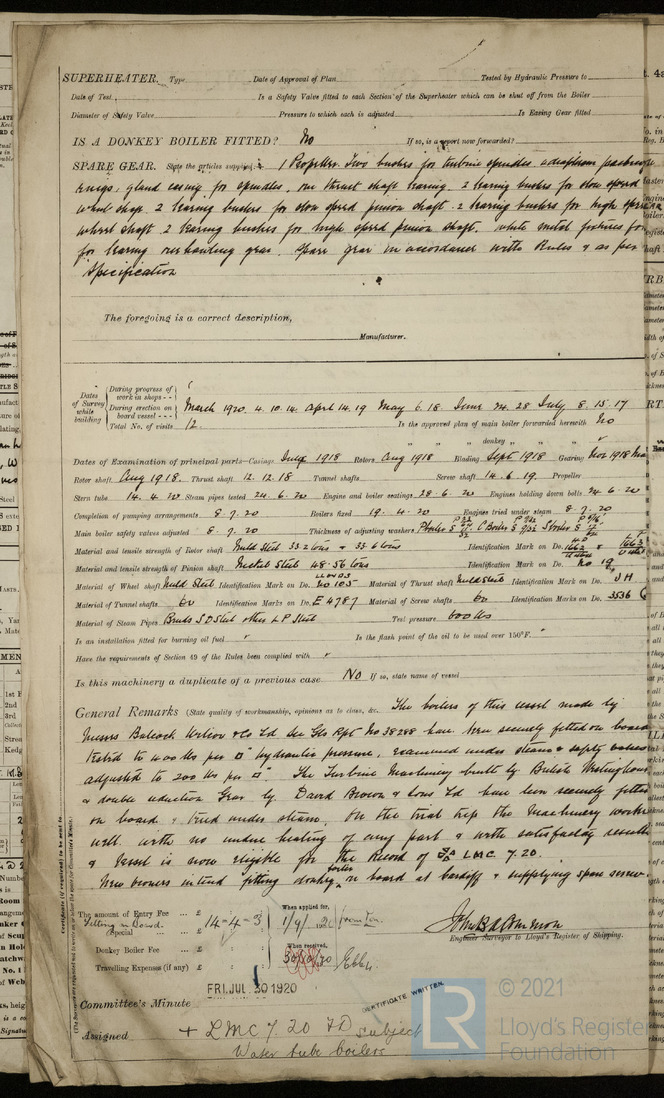 SUPERHEATER. Type Date of Approval of Plan Tested by Hydraulic Pressure to
Date of Test Is a Safety Valve fitted to each Section of the Superheater which can be shut off from the Boiler
Diameter of Safety Valve Pressure to which each is adjusted Is Easing Gear fitted
IS A DONKEY BOILER FITTED? No If so, is a report now forwarded?
SPARE GEAR. State the articles supplied:— 1 Propeller. Two bushes for turbine spindles, adaptism packing
rings, gland casing for spindles, one thrust shaft bearing. 2 bearing bushes for slow speed
wheel shaft 2 bearing bushes for slow speed pinion shaft. 2 bearing bushes for high speed
wheel shaft 2 bearing bushes for high speed pinion shaft. white metal fixtures for
for bearing overhauling gear. Spare gear in accordance with Rules & as per
Specification
The foregoing is a correct description,
Manufacturer.
Dates of Survey while building
During progress of work in shops - -
During erection on board vessel - - -
March 1920. 4. 10. 14. April 14. 19 May 6. 18. June 24. 28 July 8. 15. 17
Total No. of visits 12. Is the approved plan of main boiler forwarded herewith No
" " " donkey " " "
Dates of Examination of principal parts—Casings July 1918 Rotors Aug 1918 Blading Sept 1918 Gearing Nov 1918
Rotor shaft Aug 1918. Thrust shaft 12.12.18 Tunnel shafts Screw shaft 14.6.19. Propeller
Stern tube 14.4.20 Steam pipes tested 24.6.20 Engine and boiler seatings 28.6.20 Engines holding down bolts 24.6.20
Completion of pumping arrangements 8.7.20 Boilers fixed 19.4.20 Engines tried under steam 8.7.20
Main boiler safety valves adjusted 8.7.20 Thickness of adjusting washers P boiler C Boiler S boiler
Material and tensile strength of Rotor shaft Mild Steel 33.2 tons & 33.6 tons Identification Mark on Do. 1662 & 1663
Material and tensile strength of Pinion shaft Steel 48.56 tons Identification Mark on Do. No 19
Material of Wheel shaft Mild Steel Identification Mark on Do. No 105 Material of Thrust shaft Mild Steel Identification Mark on Do. J H
Material of Tunnel shafts Do Identification Marks on Do. E 4787 Material of Screw shafts Do Identification Marks on Do. 3536
Material of Steam Pipes S D Steel & L P Steel Test pressure 600 lbs
Is an installation fitted for burning oil fuel Is the flash point of the oil to be used over 150°F.
Have the requirements of Section 49 of the Rules been complied with
Is this machinery a duplicate of a previous case No If so, state name of vessel
General Remarks (State quality of workmanship, opinions as to class, &c. The boilers of this vessel made by
Messrs Babcock Wilcox & Co Ld See Gls Rpt No 38288 have been securely fitted on board
tested to 400 lbs per □" hydraulic pressure, examined under steam & safety valves
adjusted to 200 lbs per □". The Turbine Machinery built by British Westinghouse
& double reduction Gear by David Brown & Sons Ld have been securely fitted
on board & tried under steam. On the trial trip the Machinery worked
well with no undue heating of any part & with satisfactory results
& Vessel is now eligible for the Record of LMC 7.20.
New owners intend fitting donkey boiler on board at Cardiff & supplying spare screw.
Certificate (if required) to be sent to
(The Surveyors are requested not to write on or below the space for Committee's Minute.)
The amount of Entry Fee .. £ : : When applied for,
Fitting on Board.
Special .. £ 14-4-3 1/9/20 from Lon.
Donkey Boiler Fee .. £ : : When received,
Travelling Expenses (if any) £ : : 30/10/20
Engineer Surveyor to Lloyd's Register of Shipping.
Committee's Minute FRI. JUL. 30 1920
CERTIFICATE WRITTEN.
Assigned + LMC 7 20 FD subject
Water tube boilers
LR © 2021
Lloyd's Register
Foundation